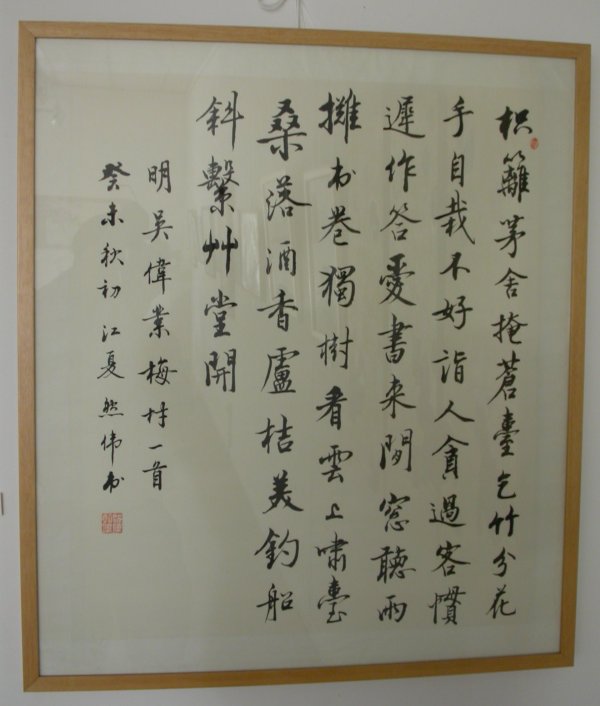 枳籬茅舍掩蒼臺乞竹分花
手自栽不好詣人貪過客慣
遲作答愛書来閒窓聽雨
攤书卷獨樹看雲上嘯臺
桑落酒香盧桔美釣船
斜繫艸堂開
明吳偉業梅村一首
癸未秋初江夏熊伟书